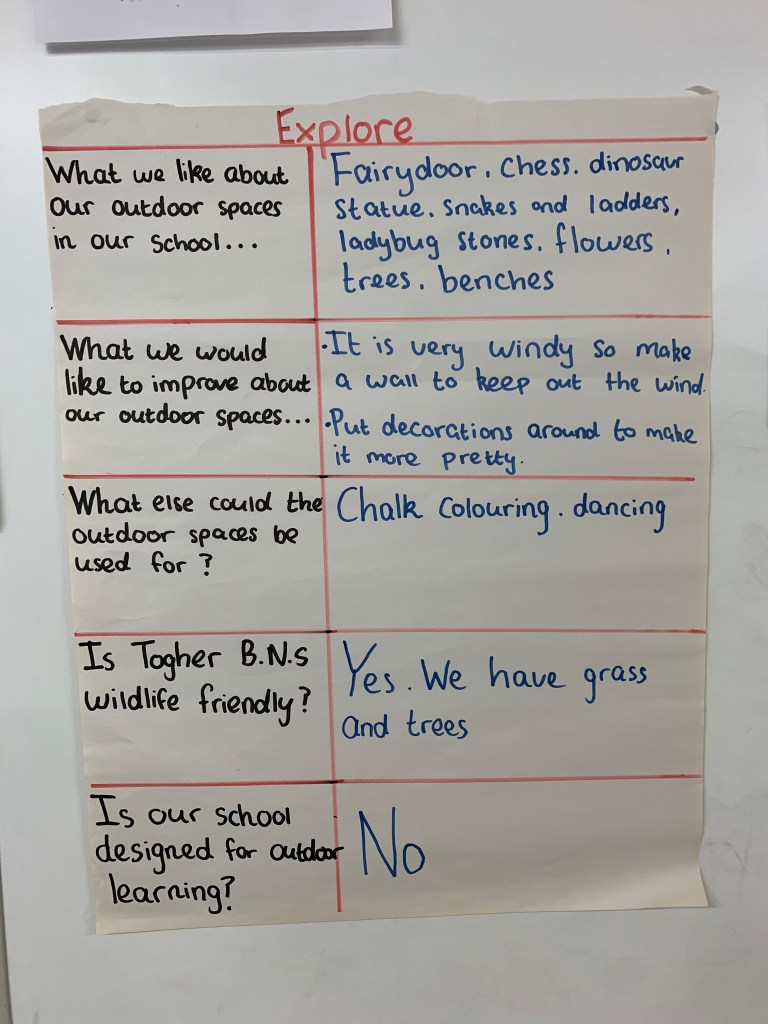 Explore
What we like about
our outdoor spaces
in our school...
Fairydoor. Chess. dinosaur
statue. snakes and ladders,
ladybug stones. flowers,
trees. benches
What we would
like to improve about
our outdoor spaces...
•It is very windy so make
a wall to keep out the wind.
•Put decorations around to make
it more pretty.
What else could the
outdoor spaces be
used for ?
Chalk colouring. dancing
Is Togher B.N.S
wildlife friendly?
Yes. We have grass
and trees
Is our school
designed for outdoor
learning?
No